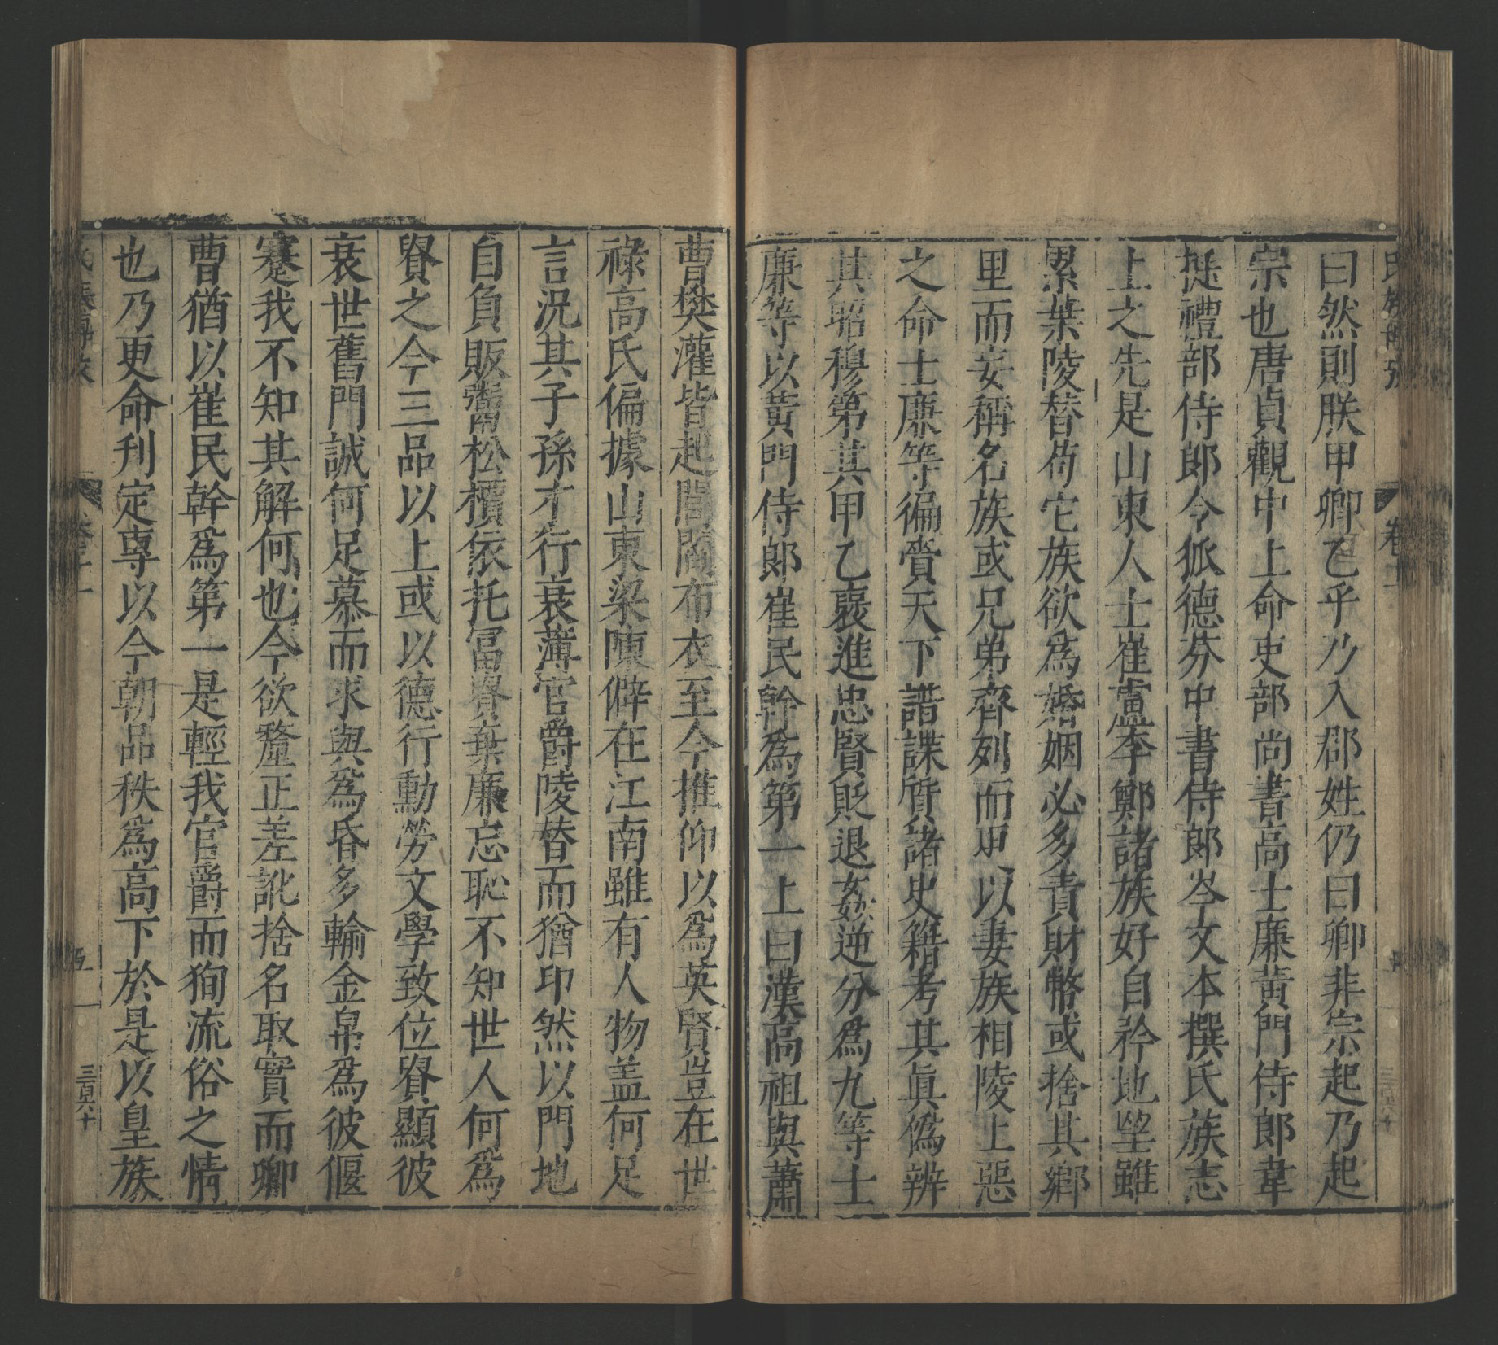 曰然則朕甲卿乙乎乃入郡姓仍曰卿非宗起乃起
宗也唐貞觀中上命吏部尚書高士廉黃門侍郎韋
挺禮部侍郎令狐德棻中書侍郎岑文本撰氏族志
上之先是山東人士崔盧李鄭諸族好自矜地望雖
累葉陵替苟它族欲爲婚姻必多責財幣或捨其鄉
里而妄稱名族或兄弟齊列而更以妻族相陵上惡
之命士廉等徧責天下譜諜質諸史籍考其眞僞辨
其昭穆第其甲乙褒進忠賢貶退姦逆分爲九等士
廉等以黃門侍郎崔民幹爲第一上曰漢高祖與蕭
曹樊灌皆起閭閻布衣至今推仰以爲英賢豈在世
祿高氏偏據山東梁陳僻在江南雖有人物盖何足
言況其子孫才行衰薄官爵陵替而猶卬然以門地
自負販鬻松檟依托富貴棄廉忘恥不知世人何爲
貴之今三品以上或以德行勳勞文學致位貴顯彼
衰世舊門誠何足慕而求與爲昏多輸金帛爲彼偃
蹇我不知其解何也今欲釐正差訛捨名取實而卿
曹猶以崔民幹爲第一是輕我官爵而狥流俗之情
也乃更命刋定專以今朝品秩爲高下於是以皇族
卷二十一
五
三百六十